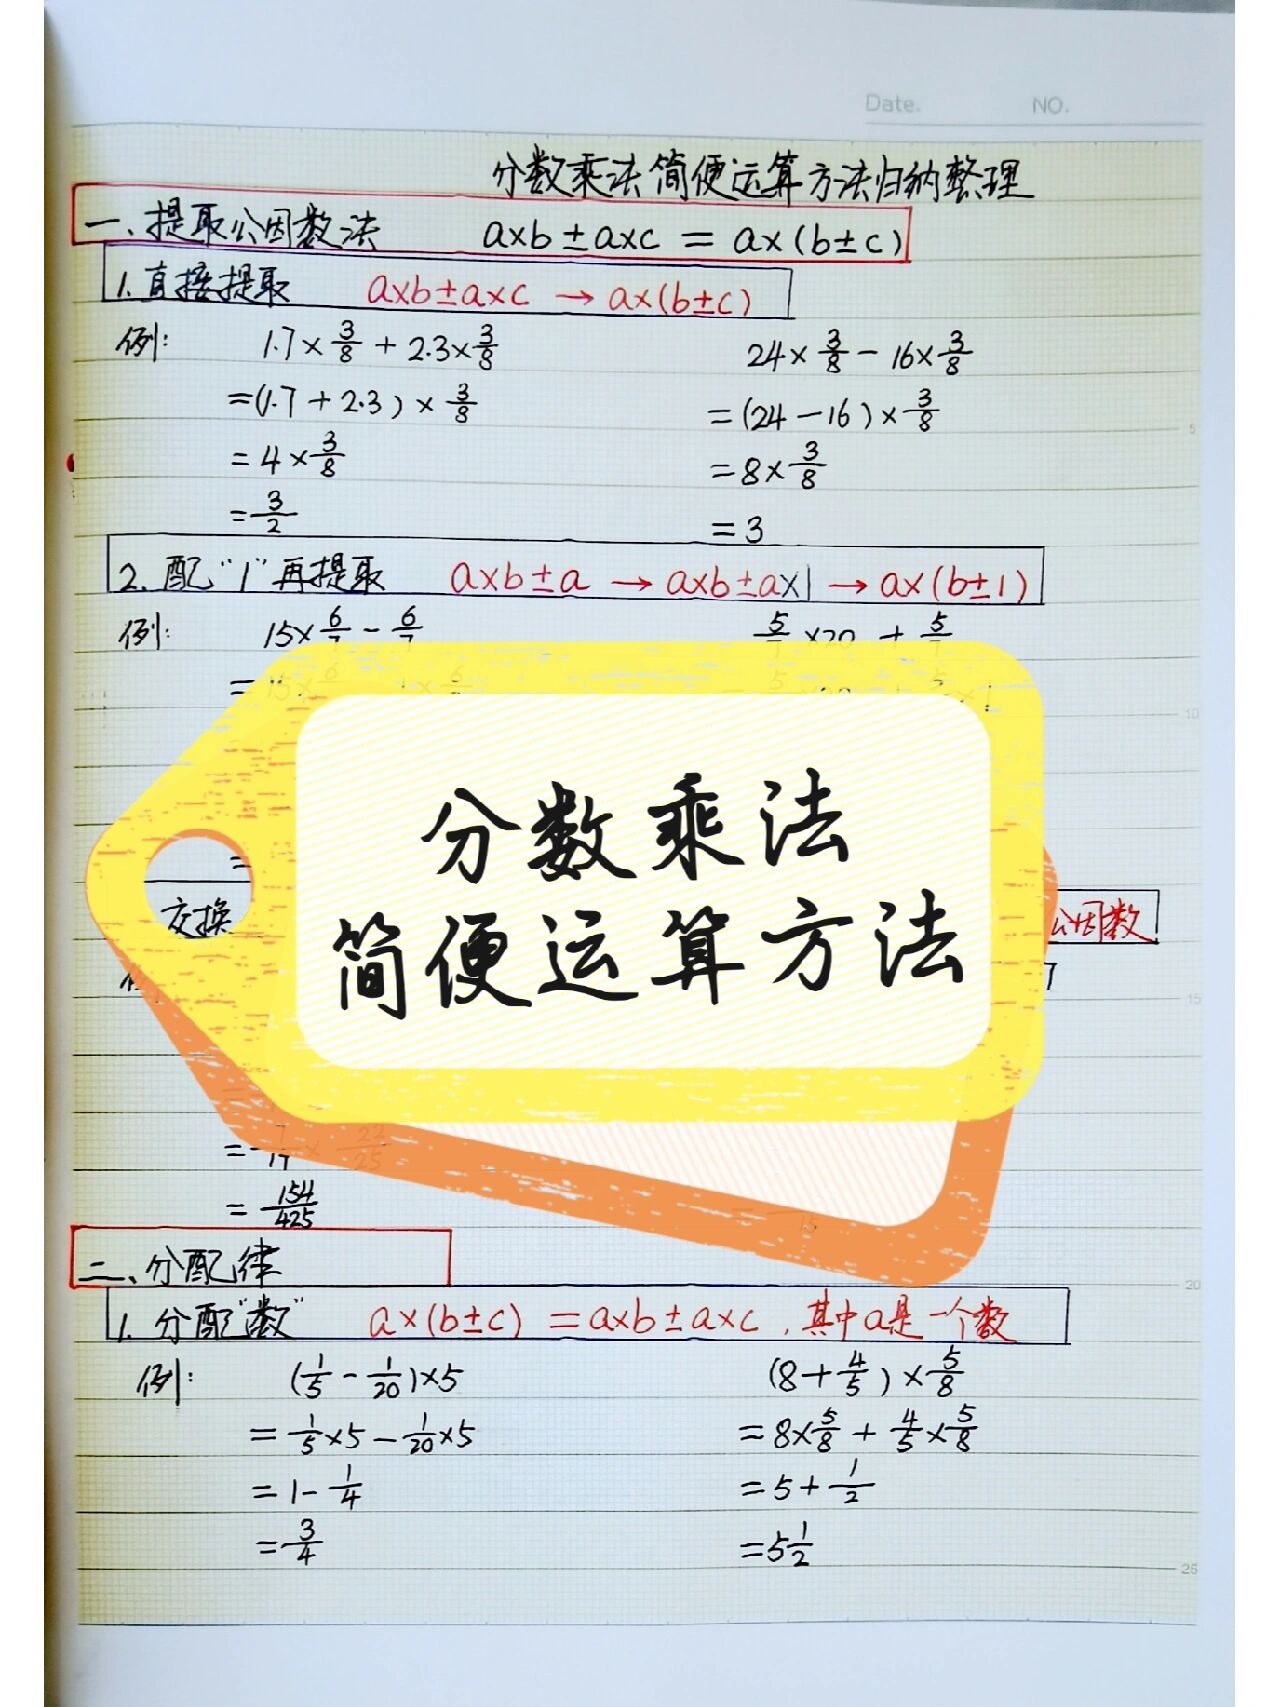 Date. NO.
分数乘法简便运算方法归纳整理
一、提取公因数法 a×b±a×c = a×(b±c)
1.直接提取 a×b±a×c → a×(b±c)
例: 1.7×3/8 + 2.3×3/8 24×3/8 − 16×3/8
=(1.7+2.3)×3/8 =(24−16)×3/8
=4×3/8 =8×3/8
=3/2 =3
2.配"1"再提取 a×b±a → a×b±a×1 → a×(b±1)
例: 15×6/ − 6/ 5/ ×20 + 5/
分数乘法
简便运算方法
交换 公因数
=154/425
二、分配律
1.分配"数" a×(b±c) =a×b±a×c,其中a是一个数
例: (1/5 − 1/20)×5 (8+4/5)×5/8
=1/5×5−1/20×5 =8×5/8 + 4/5×5/8
=1−1/4 =5+1/2
=3/4 =5 1/2
5
10
15
20
25